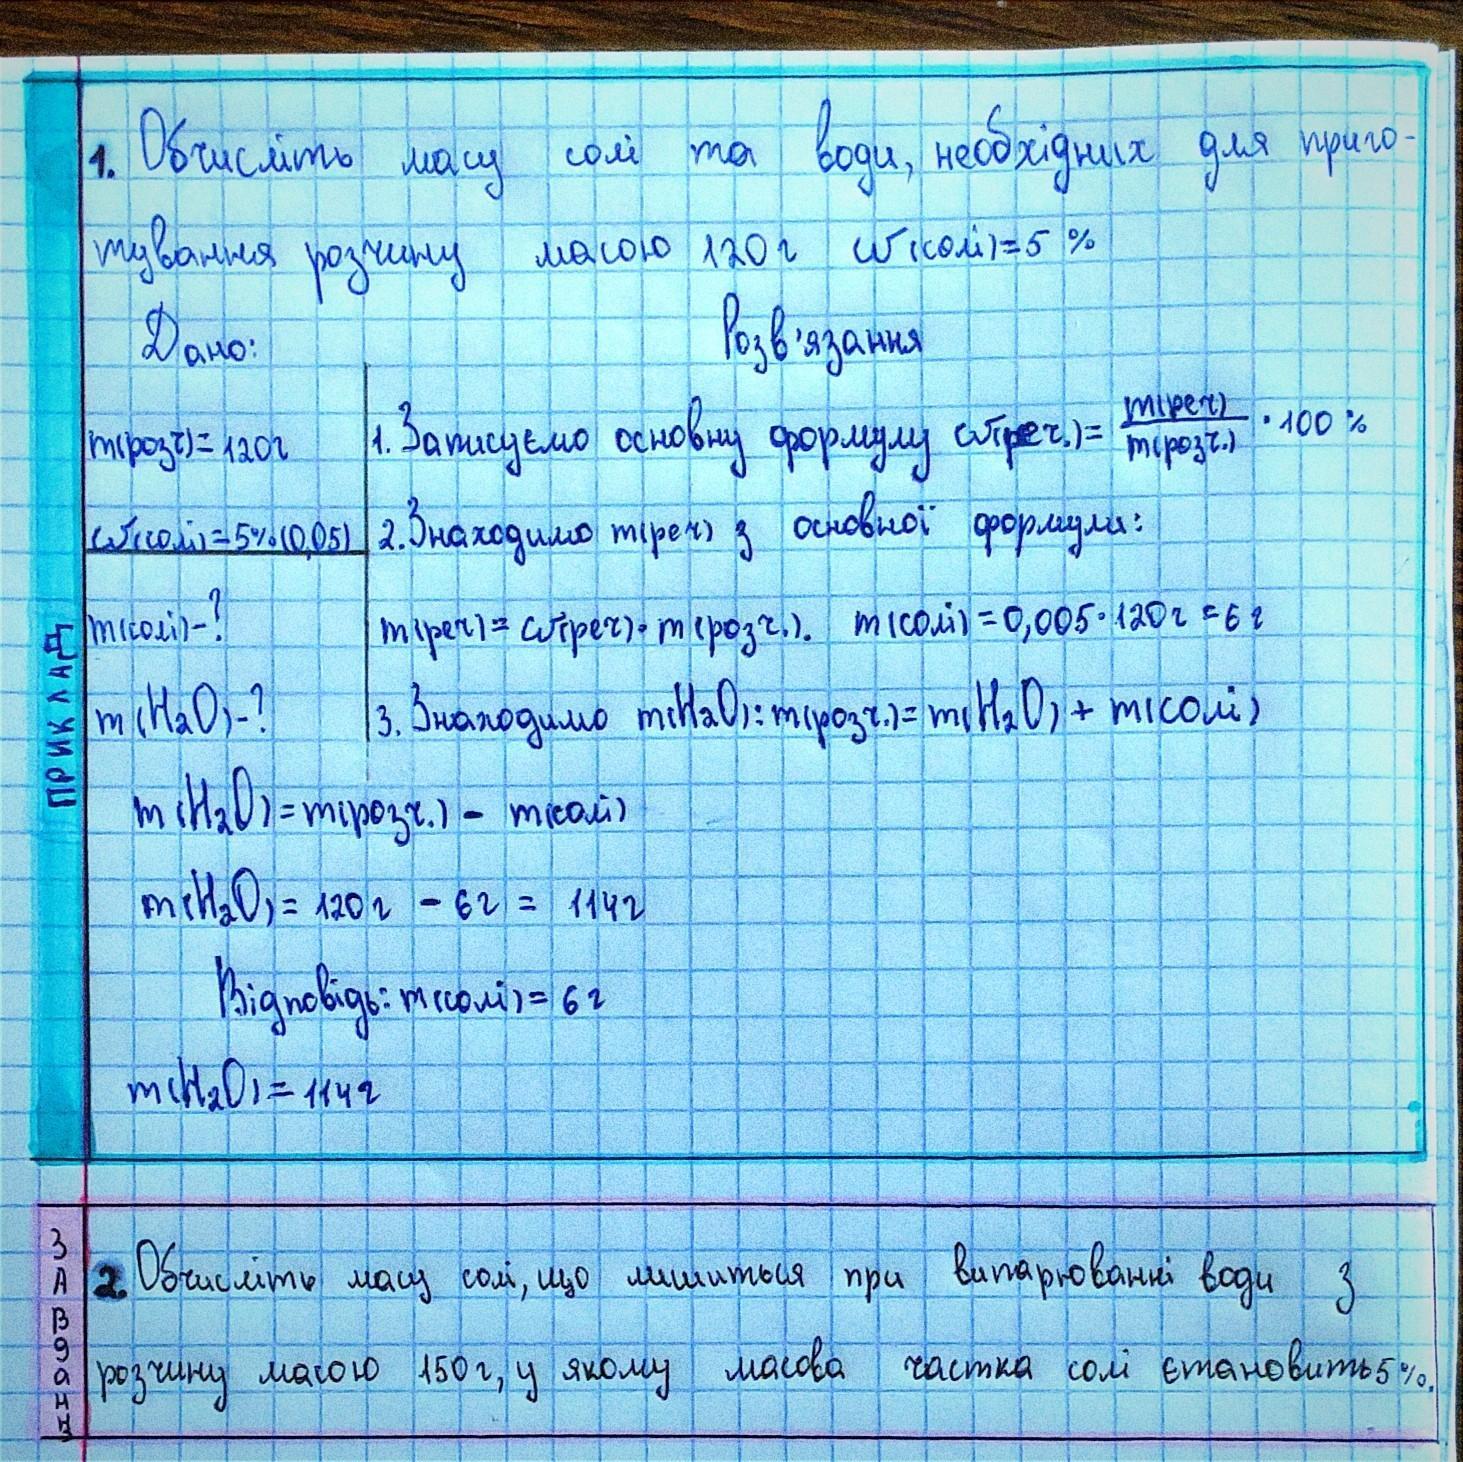 ПРИКЛАД
1. Обчисліть масу солі та води, необхідних для приго-
тування розчину масою 120г w(солі)=5%
Дано: Розв'язання
m(розч)=120г
w(солі)=5%(0,05)
m(солі)-?
m(H₂O)-?
1. Записуємо основну формулу w(реч.)= m(реч)/m(розч.) · 100%
2. Знаходимо m(реч) з основної формули:
m(реч)=w(реч)·m(розч.). m(солі)=0,005·120г=6г
3. Знаходимо m(H₂O): m(розч.)=m(H₂O)+m(солі)
m(H₂O)=m(розч.)-m(солі)
m(H₂O)=120г-6г=114г
Відповідь: m(солі)=6г
m(H₂O)=114г
Завдання
2. Обчисліть масу солі, що лишиться при випарюванні води з
розчину масою 150г, у якому масова частка солі становить 5%.